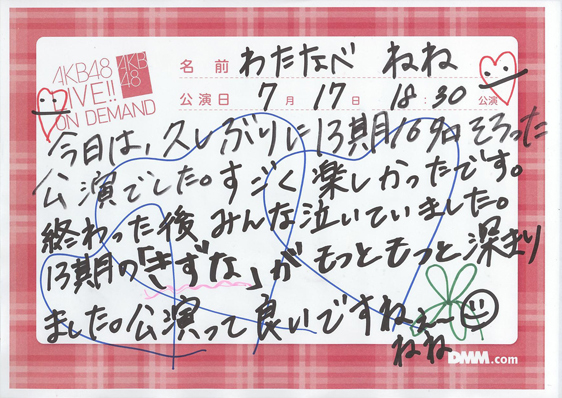 AKB48
LIVE!!
ON DEMAND
AKB
48
名前 わたなべ ねね
公演日 7月17日 18:30公演
今日は、久しぶりに13期16名そろった
公演でした。すごく楽しかったです。
終わった後みんな泣いていました。
13期の「きずな」がもっともっと深まり
ました。公演って良いですねぇ〜
ねね
DMM.com